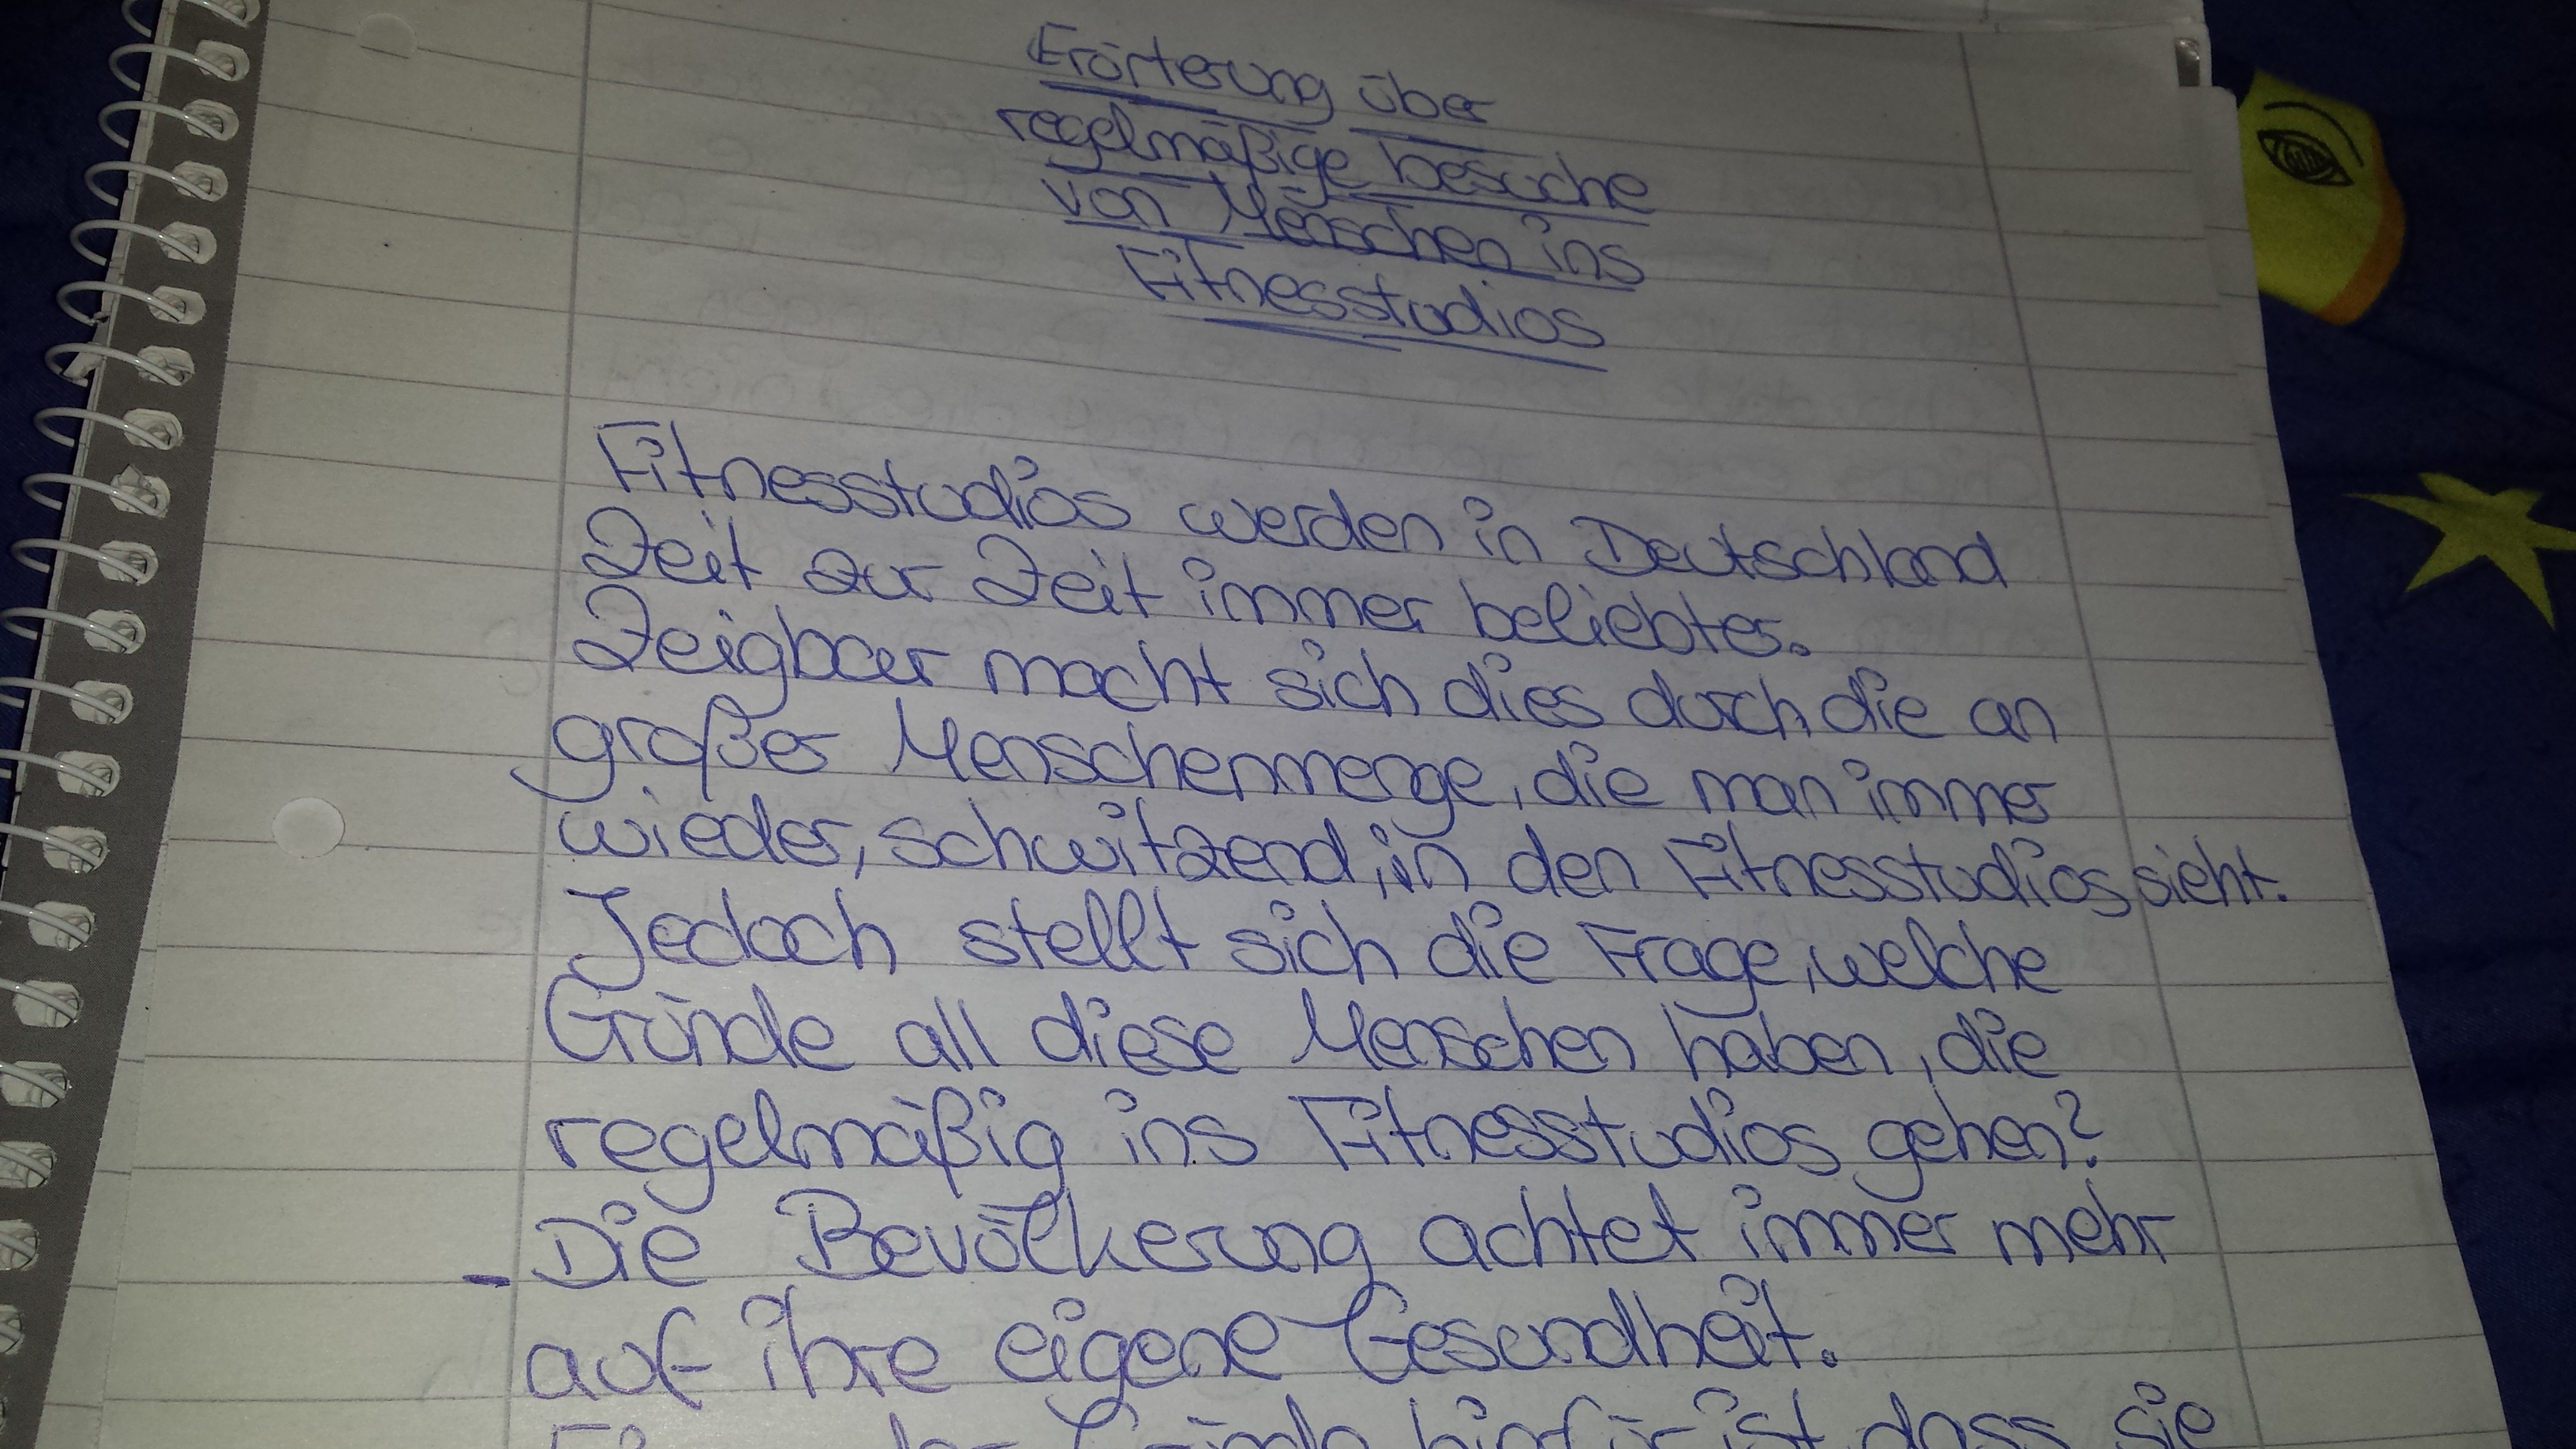 Erörterung über
regelmäßige besuche
von Menschen ins
Fitnesstudios
Fitnesstudios werden in Deutschland
Zeit zur Zeit immer beliebter.
Zeigbar macht sich dies durch die an
großer Menschenmenge, die man immer
wieder, schwitzend, in den Fitnesstudios sieht.
Jedoch stellt sich die Frage, welche
Gründe all diese Menschen haben, die
regelmäßig ins Fitnesstudios gehen?
- Die Bevölkerung achtet immer mehr
auf ihre eigene Gesundheit.
hierfür ist, dass sie